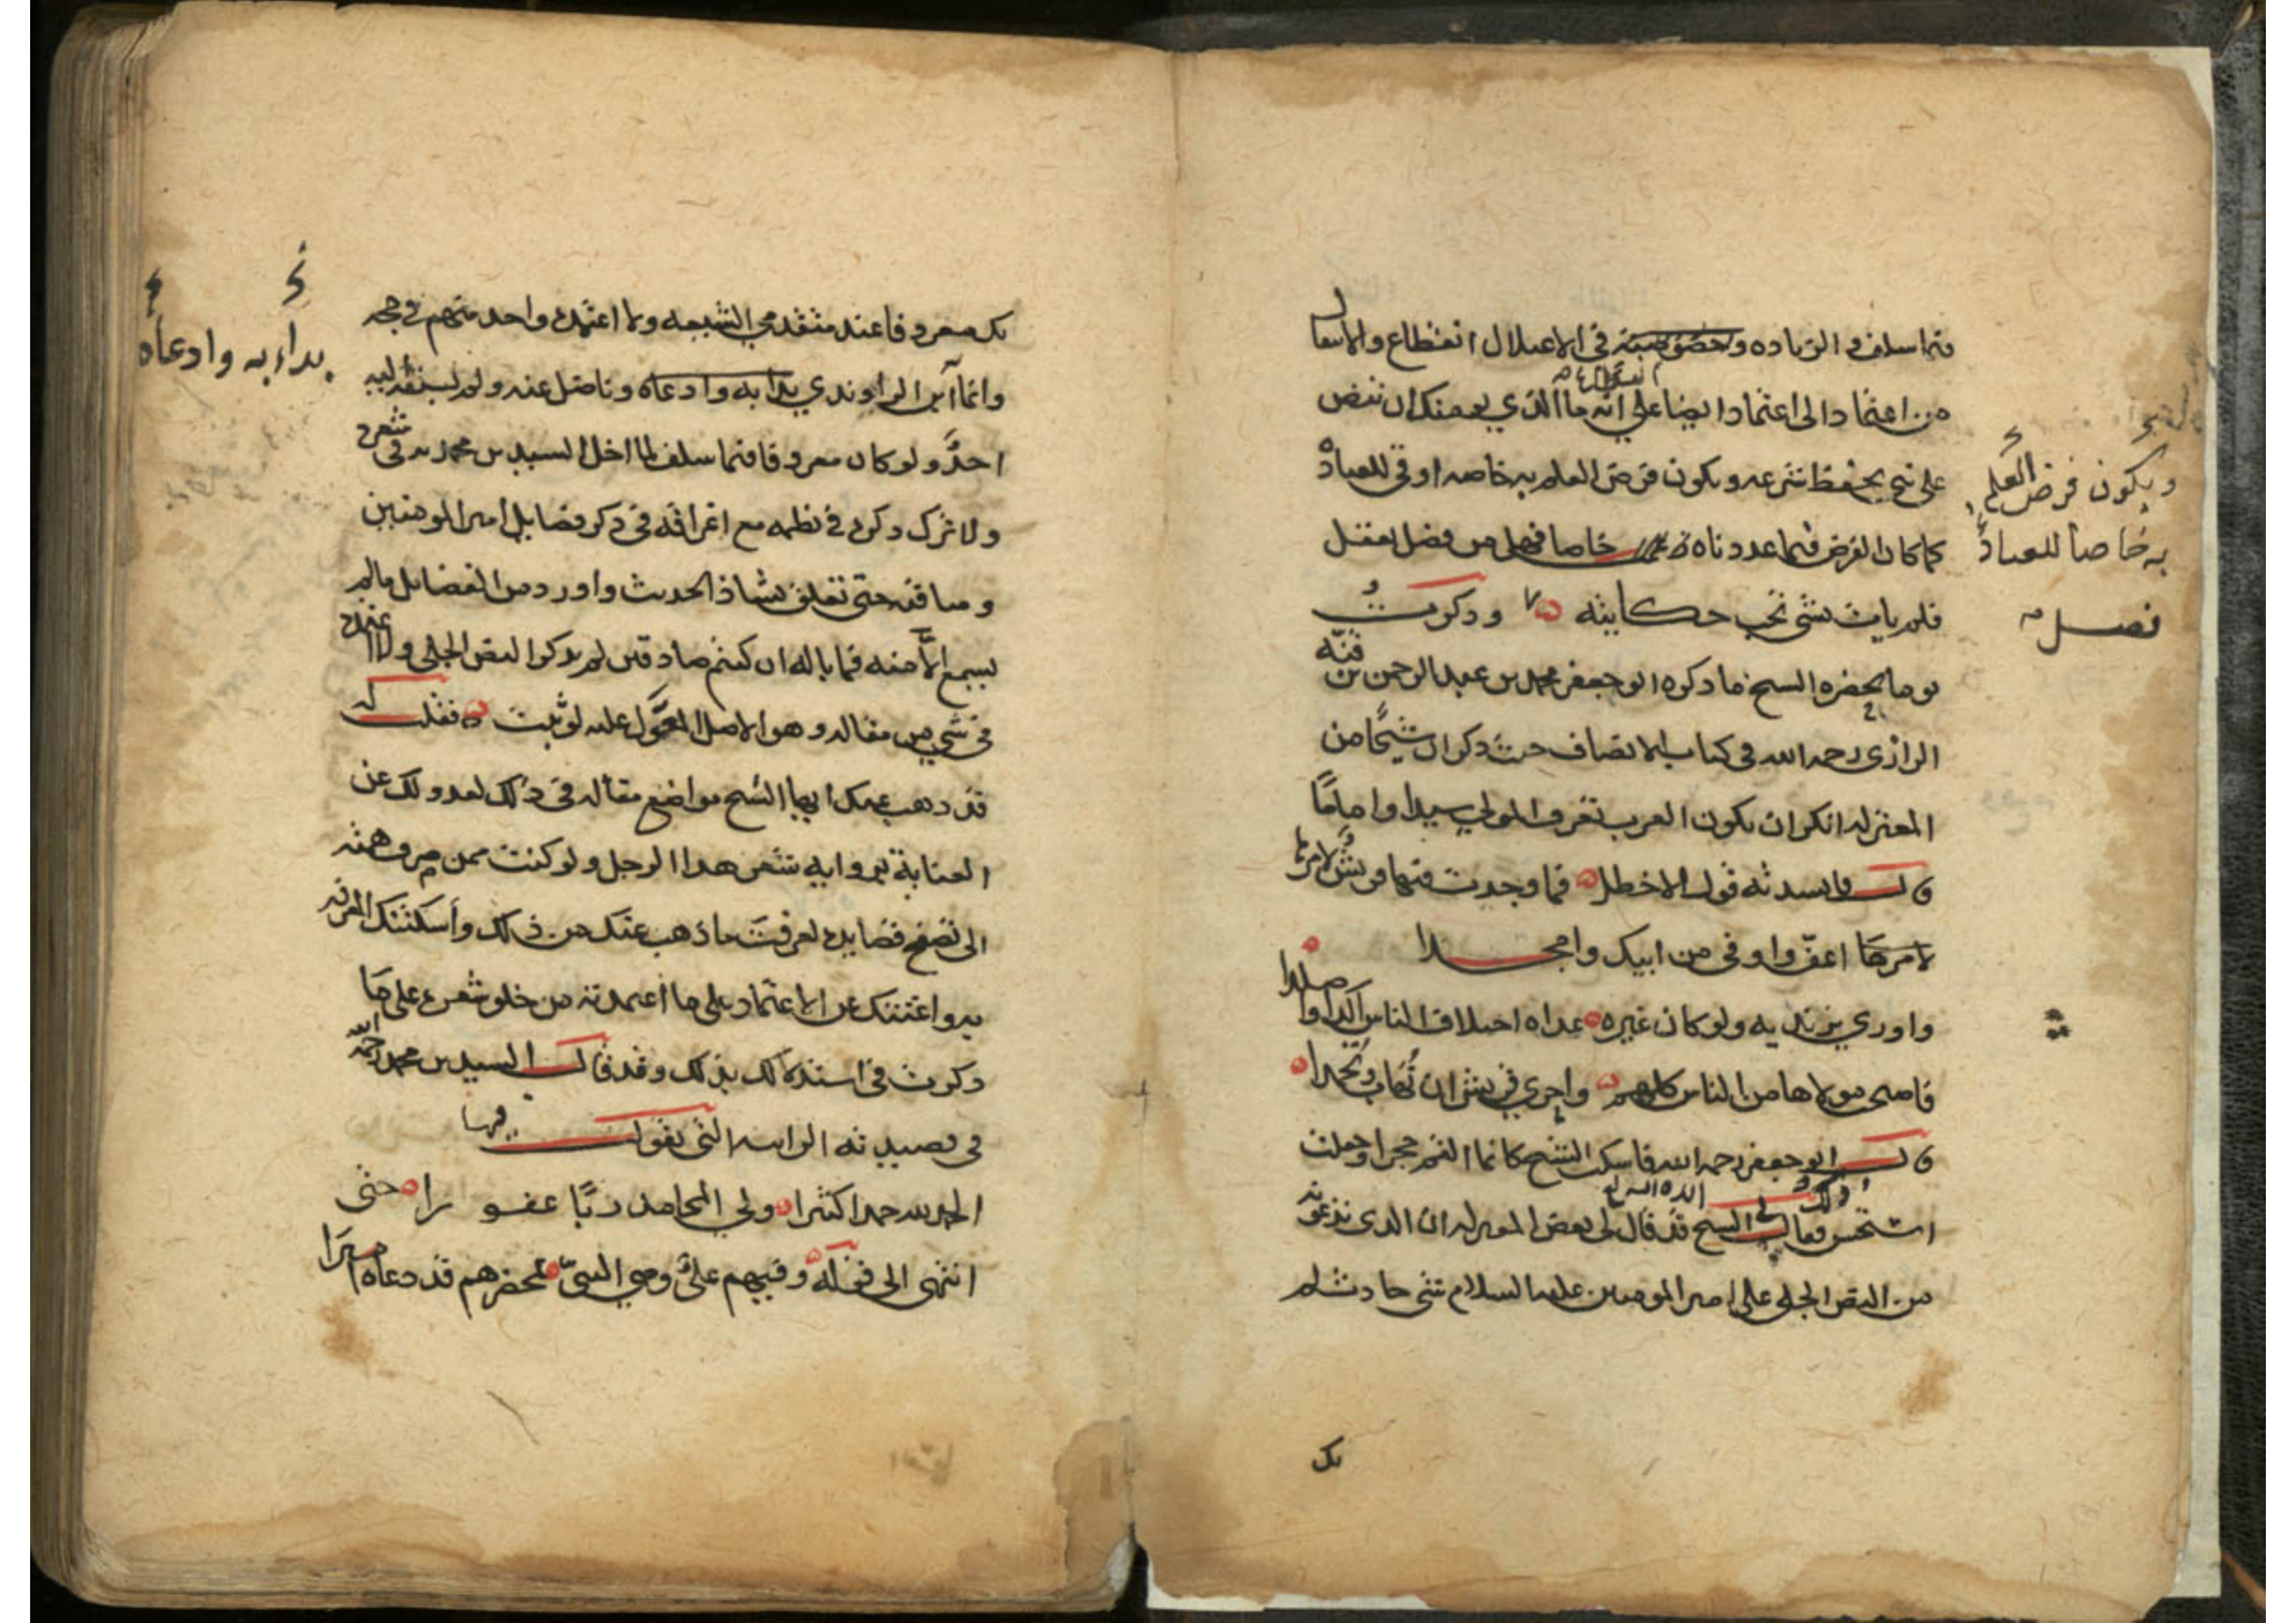 فيما سلف والزياده وخصوصيته في الاعتلال انقطاع والانتقال
من اعتماد الى اعتماد ايضا على انه ما الذي يعصمك ان تنقض
على نبي يحفظ شرعه ويكون فرض العلم به خاصه اوقى للعباد
كما كان الفرض فيما عددناه خاصا فهل من فصل يعقل
فلم يات بشي تجب حكايته وذكرت
بحضره الشيخ ما ذكره ابو جعفر محمد بن عبد الرحمن بن قبّه
الرازي رحمه الله في كتاب الانصاف حيث ذكر ان شيخًا من
المعتزله انكر ان يكون العرب تعرف المولى سيدا واماما
قال فانشدته قول الاخطل فما وجدت فيها قريش لامرها
لامرها اعفّ واوفى من ابيك وامجدا
واورى بزنديه ولو كان غيره غداه اختلاف الناس اكدا واصلدا
فاصبح مولاها من الناس كلهم واحرى قريش ان تُهاب وتُحمدا
قال ابو جعفر رحمه الله فاسكت الشيخ كانما القم حجرا وجعلت
استحسن ذلك فقال لي الشيخ قد قال لي بعض المعتزله ان الذي تدعونه
من النص الجلي على امير المومنين عليه السلام شي حادث لم
ويكون فرض العلم
به خاصا للعباد
فصل
يك
يك معروفا عند متقدمي الشيعه ولا اعتمده واحد منهم في حجه
وانما ابن الراوندي بدا به وادعاه وناضل عنه ولم يسبقه اليه
احدٌ ولو كان معروفا فيما سلف لما اخل السيد بن محمد به في شعره
ولا ترك ذكره في نظمه مع اغراقه في ذكر فضايل امير المومنين
ومناقبه حتى تعلق بشاذ الحديث واورد من الفضايل مالم
يسمع الاّ منه فما باله ان كنتم صادقين لم يذكر النص الجلي ولا اعتمده
في شي من مقاله وهو الاصل المعوّل عليه لو ثبت فقلت له
قد ذهب عنك ايها الشيخ مواضع مقاله في ذلك لعدولك عن
العنايه بروايه شعر هذا الرجل ولو كنت ممن صرف همته
الى تصفح قصايده لعرفت ما ذهب عنك من ذلك واسكنتك المعرفه
به واغنتك عن الاعتماد على ما اعتمدته من خلو شعره على ما
ذكرت في استدلالك بذلك وقد قال السيد بن محمد رحمه الله
في قصيدته الرائيه التي يقول فيها
الحمد لله حمدا كثيرا ولي المحامد ربًا غفورا حتى
انتهى الى قوله وفيهم عليٌ وصي النبيّ بمحضرهم قد دعاه اميرا
بداء به وادعاه